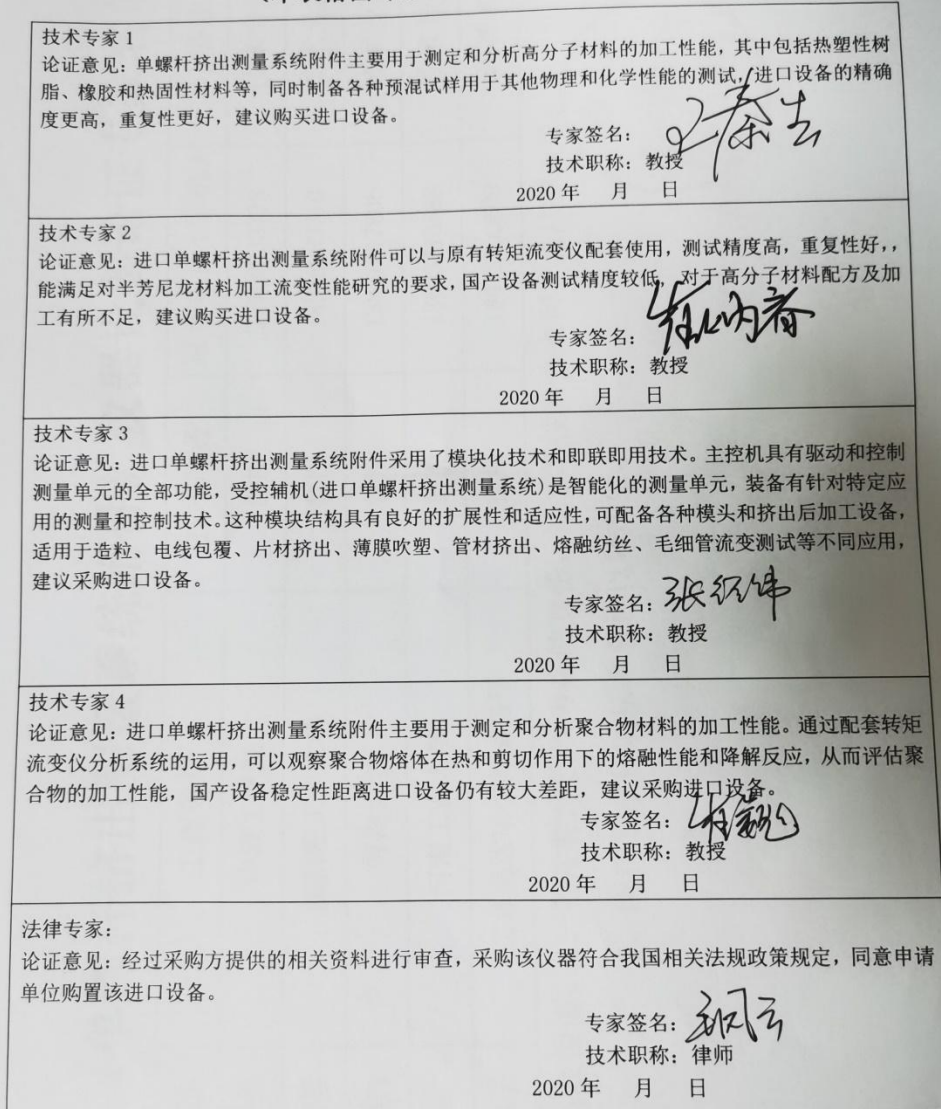 技术专家 1
论证意见：单螺杆挤出测量系统附件主要用于测定和分析高分子材料的加工性能，其中包括热塑性树
脂、橡胶和热固性材料等，同时制备各种预混试样用于其他物理和化学性能的测试，进口设备的精确
度更高，重复性更好，建议购买进口设备。
专家签名：
技术职称：教授
2020 年 月 日
技术专家 2
论证意见：进口单螺杆挤出测量系统附件可以与原有转矩流变仪配套使用，测试精度高，重复性好，，
能满足对半芳尼龙材料加工流变性能研究的要求，国产设备测试精度较低，对于高分子材料配方及加
工有所不足，建议购买进口设备。
专家签名：
技术职称：教授
2020 年 月 日
技术专家 3
论证意见：进口单螺杆挤出测量系统附件采用了模块化技术和即联即用技术。主控机具有驱动和控制
测量单元的全部功能，受控辅机(进口单螺杆挤出测量系统)是智能化的测量单元，装备有针对特定应
用的测量和控制技术。这种模块结构具有良好的扩展性和适应性，可配备各种模头和挤出后加工设备，
适用于造粒、电线包覆、片材挤出、薄膜吹塑、管材挤出、熔融纺丝、毛细管流变测试等不同应用，
建议采购进口设备。
专家签名：张经纬
技术职称：教授
2020 年 月 日
技术专家 4
论证意见：进口单螺杆挤出测量系统附件主要用于测定和分析聚合物材料的加工性能。通过配套转矩
流变仪分析系统的运用，可以观察聚合物熔体在热和剪切作用下的熔融性能和降解反应，从而评估聚
合物的加工性能，国产设备稳定性距离进口设备仍有较大差距，建议采购进口设备。
专家签名：
技术职称：教授
2020 年 月 日
法律专家：
论证意见：经过采购方提供的相关资料进行审查，采购该仪器符合我国相关法规政策规定，同意申请
单位购置该进口设备。
专家签名：
技术职称：律师
2020 年 月 日